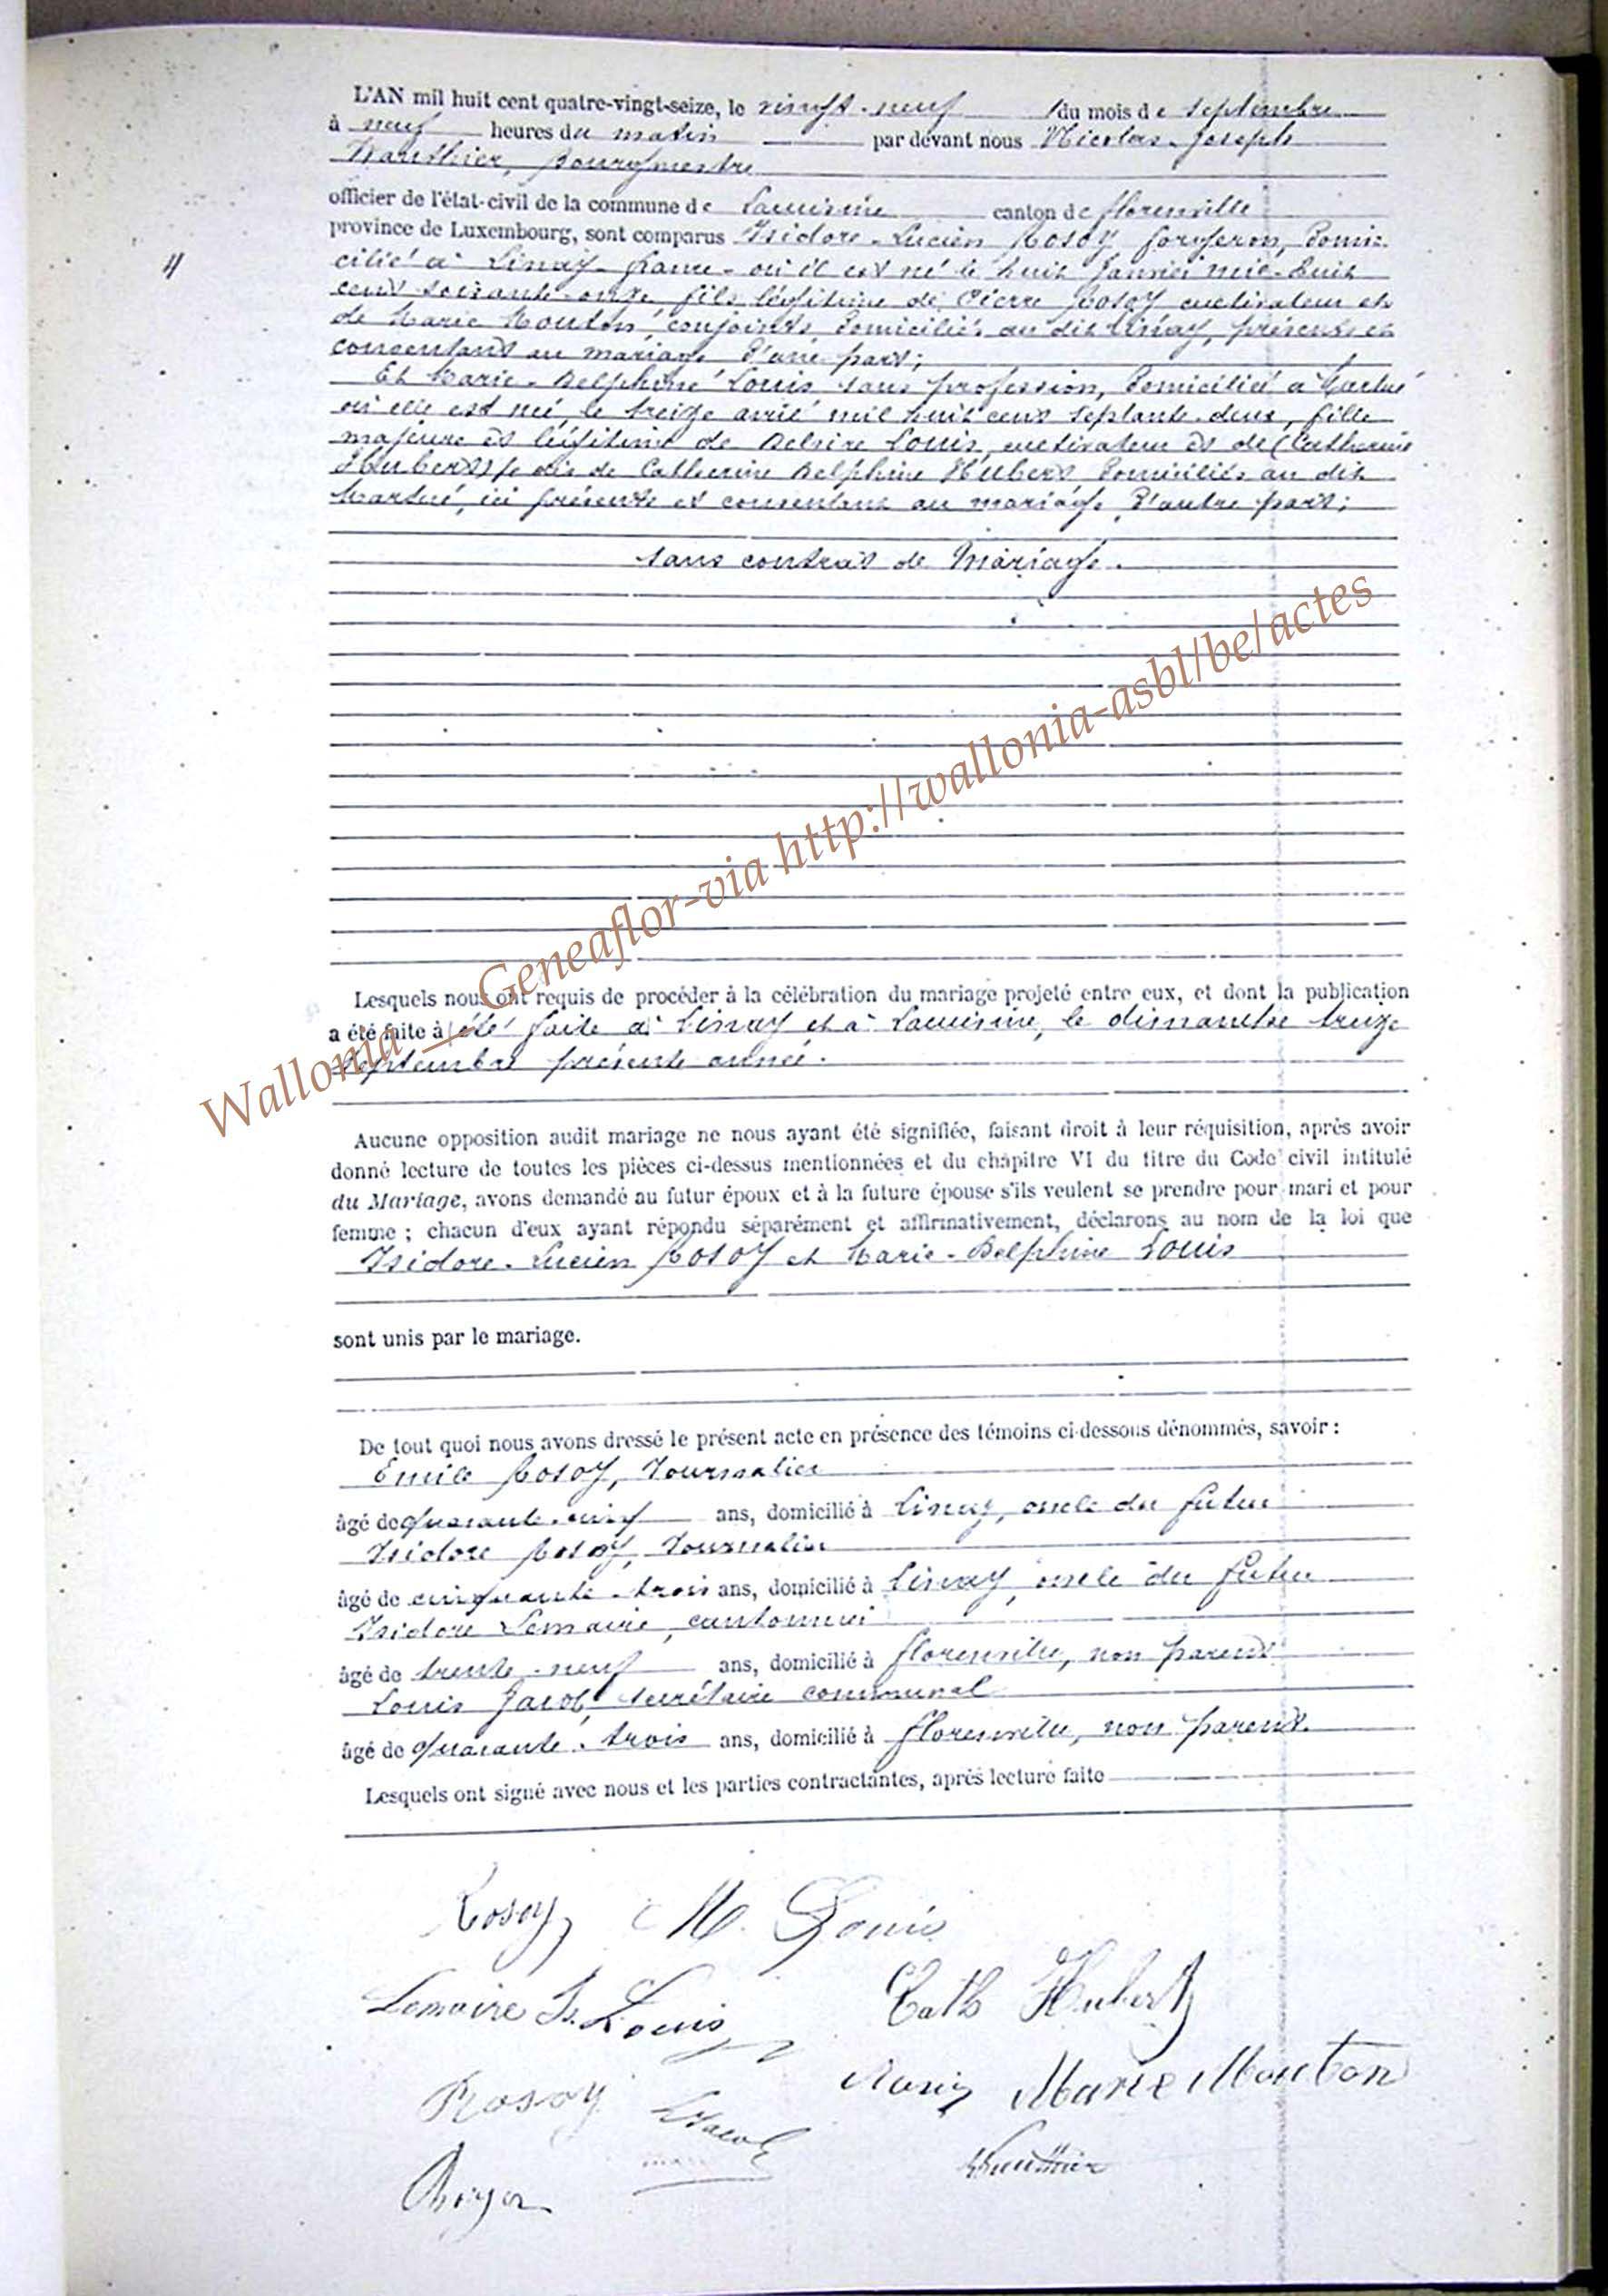 L'AN mil huit cent quatre-vingt-seize, le vingt-neuf du mois de septembre
à neuf heures du matin par devant nous Nicolas-Joseph
Wauthier, Bourgmestre
officier de l'état-civil de la commune de Lacuisine canton de florenville
province de Luxembourg, sont comparus Isidore-Lucien Rosoy forgeron, domi-
cilié à Linay-france-où il est né le huit Janvier mil-huit
cent soixante-onze fils légitime de Pierre Rosoy cultivateur et
de Marie Mouton conjoints domiciliés au dit Linay, présents et
consentans au mariage d'une part;
Et Marie-Delphine Louis sans profession, domiciliée à Martué
où elle est née, le treize avril mil huit cent septante-deux, fille
majeure et légitime de Désiré Louis, cultivateur et de (Catherine
Hubert) je dis de Catherine Delphine Hubert domiciliés au dit
Martué, ici présents et consentans au mariage, d'autre part;
sans contrat de Mariage.
Lesquels nous ont requis de procéder à la célébration du mariage projeté entre eux, et dont la publication
a été faite à été faite à Linay et à Lacuisine, le dimanche treize
septembre présente année.
Aucune opposition audit mariage ne nous ayant été signifiée, faisant droit à leur réquisition, après avoir
donné lecture de toutes les pièces ci-dessus mentionnées et du chapitre VI du titre du Code civil intitulé
du Mariage, avons demandé au futur époux et à la future épouse s'ils veulent se prendre pour mari et pour
femme ; chacun d'eux ayant répondu séparément et affirmativement, déclarons au nom de la loi que
Isidore-Lucien Rosoy et Marie-Delphine Louis
sont unis par le mariage.
De tout quoi nous avons dressé le présent acte en présence des témoins ci-dessous dénommés, savoir :
Emile Rosoy, Journalier
âgé de quarante-cinq ans, domicilié à Linay, oncle du futur
Isidore Rosoy, Journalier
âgé de cinquante-trois ans, domicilié à Linay, oncle du futur
Isidore Lemaire, cantonnier
âgé de trente-neuf ans, domicilié à florenville, non parent
Louis Jacob, secrétaire communal
âgé de quarante-trois ans, domicilié à florenville, non parent.
Lesquels ont signé avec nous et les parties contractantes, après lecture faite
Rosoy M. Louis
Lemaire Is. Louis Cath Hubert
Rosoy LJacob Marie Mouton
Wauthier
Wallonia _ Geneaflor-via http://wallonia-asbl/be/actes